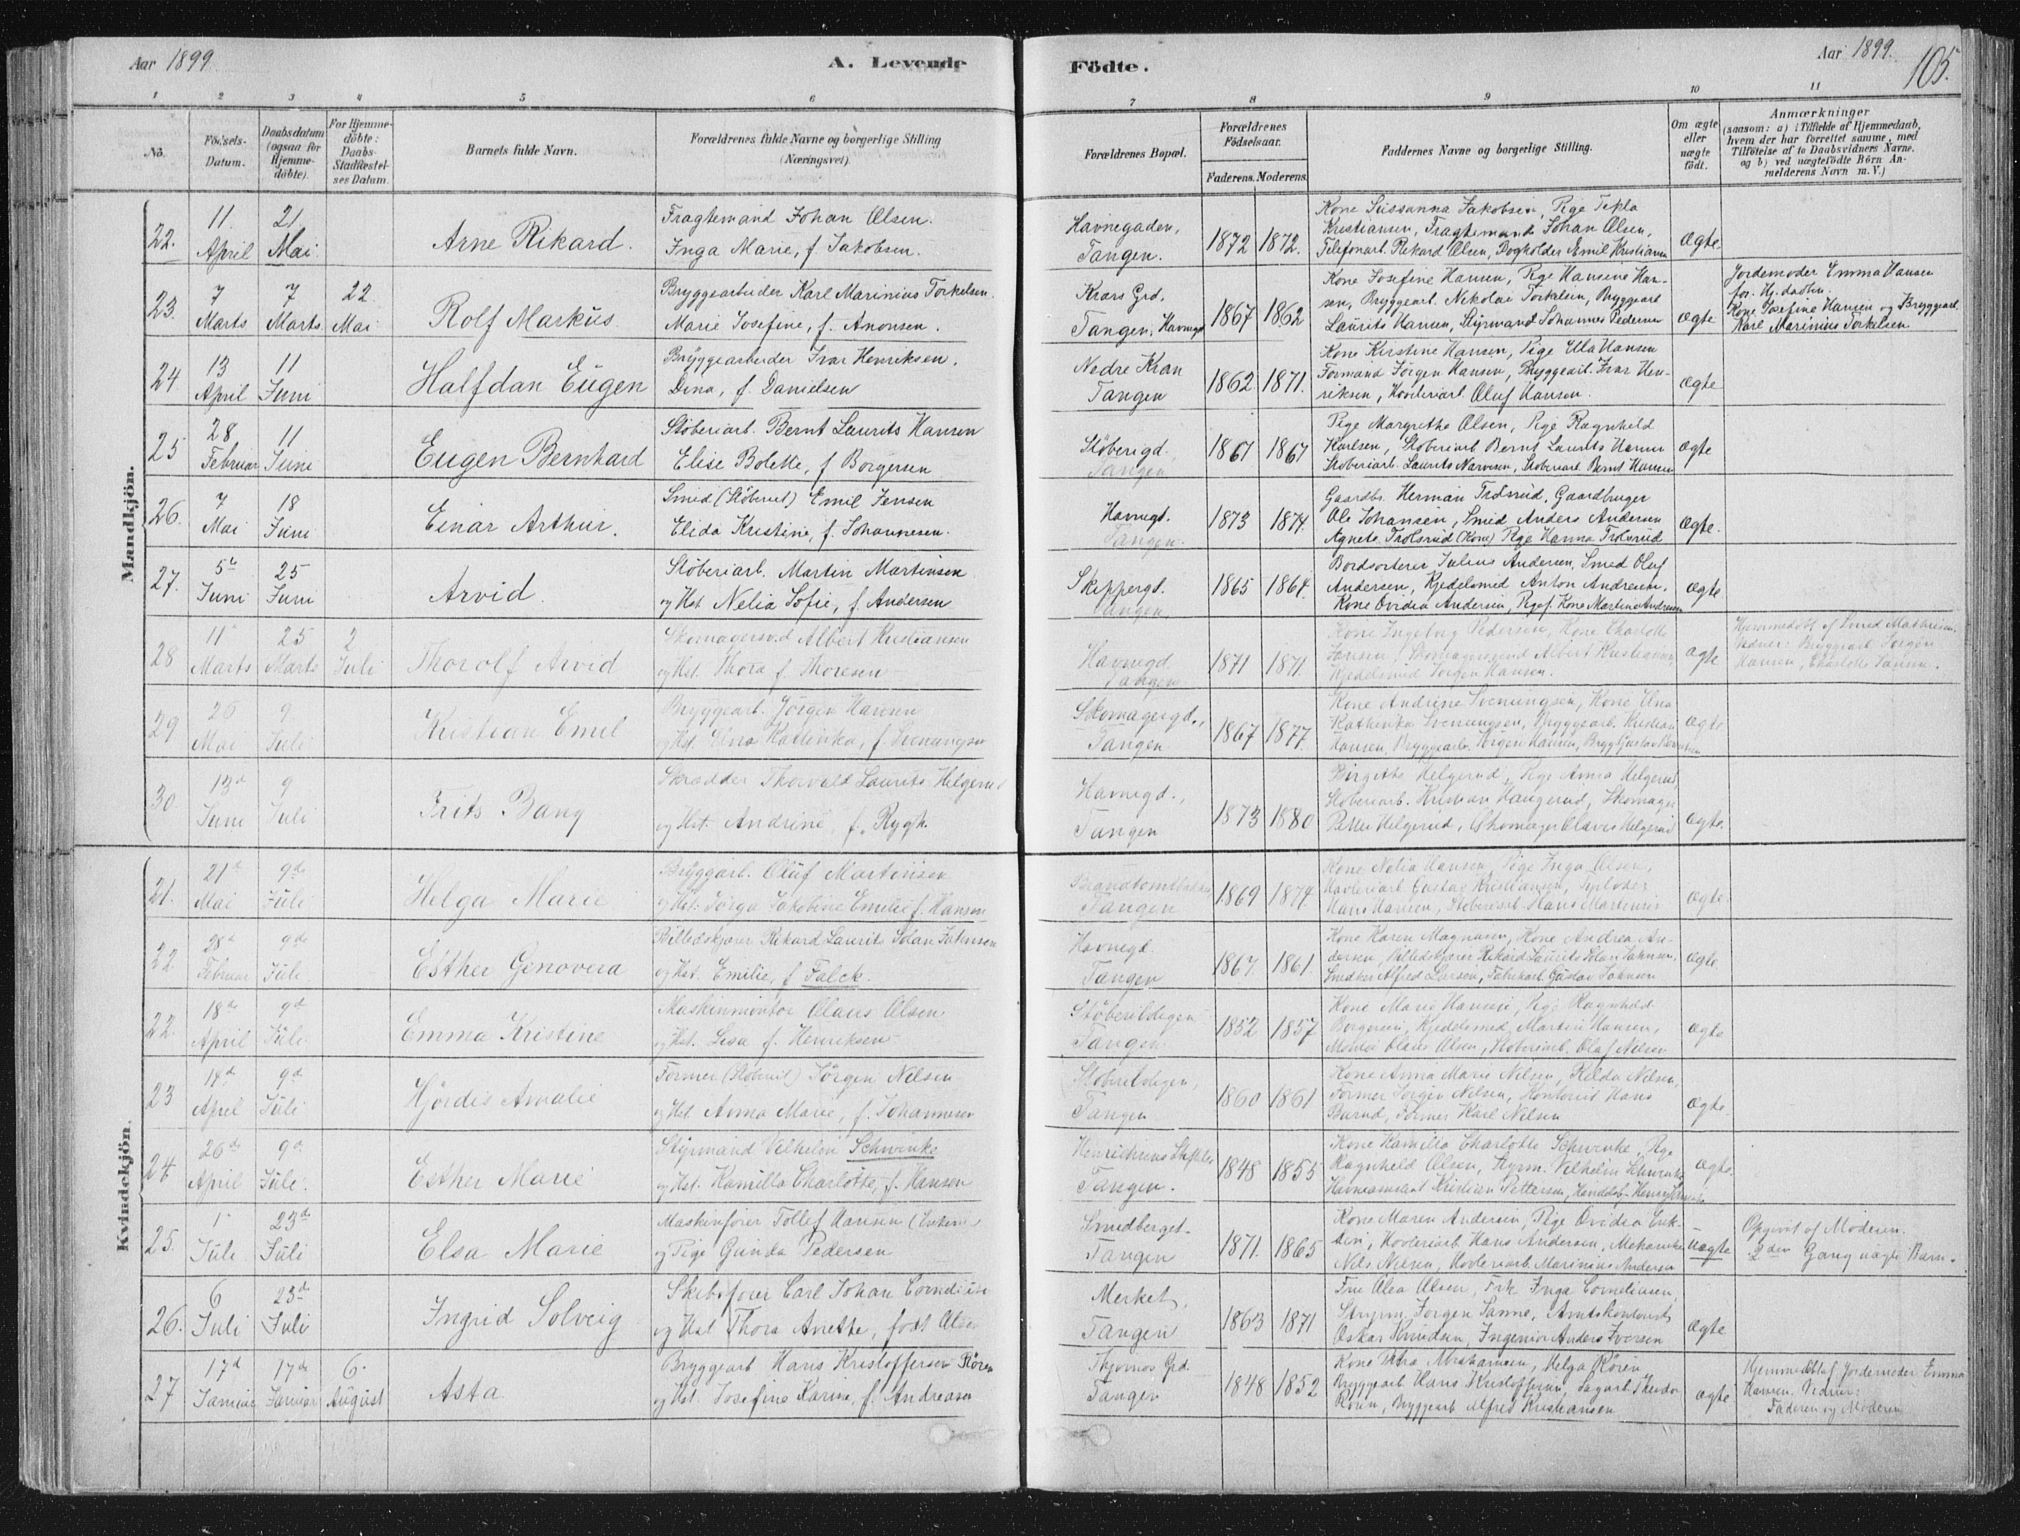 Aar 1899.
A. Levende Födte.
Aar 1899.
105.
1 2 3 4 5 6 7 8 9 10 11
No. Födsels-Datum. Daabsdatum (ogsaa for Hjemmedöbte). For Hjemmedöbte: Daabs-Stadfæstelses Datum. Barnets fulde Navn. Forældrenes fulde Navne og borgerlige Stilling (Næringsvei). Forældrenes Bopæl. Forældrenes Födselsaar. Faderens. Moderens. Faddernes Navne og borgerlige Stilling. Om ægte eller uægte födt. Anmærkninger (saasom: a) i Tilfælde af Hjemmedaab, hvem der har forrettet samme, med Tilföielse af to Daabsvidners Navne, og b) ved uægtefödte Börn Anmelderens Navn m. V.)
Mandkjön.
22. 11 April 21 Mai. Arne Rikard.
Fragtemand Johan Olsen.
Inga Marie, f. Jakobsen.
Havnegaden, Tangen. 1872 1872.
Kone Sussanna Jakobsen, Pige Tekla
Kristiansen, Fragtemand Johan Olsen,
Telefonarb. Rikard Olsen, Bogholder Emil Kristiansen
Ægte
23. 7 Marts 7 Marts. 22. Mai Rolf Markus.
Bryggearbeider Karl Marinius Torkelsen.
Marie Josefine, f. Anonsen.
Krars Grd. Tangen, Havnegd 1867 1862
Kone Josefine Hansen, Pige Hansine Han-
sen, Bryggearb. Nikolai Torkelsen, Bryggearb
Laurits Hansen, Styrmand Johannes Pedersen
ægte
Jordemoder Emma Hansen
for. Hj.daaben.
Kone Josefine Hansen og Bryggearb.
Karl Marinius Torkelsen
24 13 April 11 Juni Halfdan Eugen
Bryggearbeider Ivar Henriksen.
Dina, f. Danielsen
Nedre Kran Tangen 1862 1871.
Kone Kirstine Hansen, Pige Ulla Hansen
Formand Jörgen Hansen, Bryggearb. Ivar Hen-
riksen, Hövleriarb. Oluf Hansen.
Ægte
25 28 Februar 11 Juni Eugen Bernhard
Stöberiarb. Bernt Laurits Hansen
Elise Bolette, f. Borgersen
Stöberigd. Tangen 1867 1867
Pige Margrethe Olsen, Pige Ragnhild
Karlsen, Stöberiarb Bernt Laurits Hansen
Stöberiarb. Laurits Narvesen, Stöberiarb. Bernt Hansen
ægte
26. 7 Mai 18 Juni Einar Arthur.
Smed (Stöberiet) Emil Jensen
Elida Kristine, f. Johannesen.
Havnegd. Tangen. 1873 1874.
Gaardbr. Herman Trolsrud, Gaardbruger
Ole Johansen, Smed Anders Andersen
Agnete Trolsrud (Kone) Pige Hanna Trolsrud
Ægte.
27. 5te Juni 25 Juni Arvid.
Stöberiarb. Martin Martinsen
og Hst. Nelia Sofie, f. Andersen
Skippergd. Tangen 1865 1864.
Bordsorterer Julius Andersen, Smed Oluf
Andersen, Kjedelsmed Anton Andresen,
Kone Ovidia Andersen, Kone Martina Andresen
ægte
28 11 Marts 25 Marts 2 Juli Thorolf Arvid
Skomagersvd Albert Kristiansen
og Hst. Thora f. Thoresen
Havnegd. Tangen 1871 1871.
Kone Ingeborg Pedersen, Kone Charlotte
Jansen, Skomagersvend Albert Kristiansen,
Kjedelsmed Jörgen Hansen.
ægte
Hjemmedöbt af Smed Mathisen.
Vidner: Bryggearb. Jörgen
Hansen, Charlotte Jansen.
29 26 Mai 9 Juli Kristian Emil
Bryggearb. Jörgen Hansen
og Hst. Una Kathinka, f. Svenungsen
Skomagergd., Tangen 1867 1877.
Kone Andrine Svenungsen, Kone Una
Kathinka Svenungsen, Bryggearb. Kristian
Hansen, Bryggearb. Jörgen Hansen, Brygg Gustav
ægte
30 13d Juni 9 Juli Frits Bang
Skrædder Thorvald Laurits Helgerud
og Hst. Andrine, f. Rygh.
Havnegd., Tangen 1873 1880
Birgithe Helgerud, Pige Anna Helgerud,
Stöberiarb. Kristian Haugerud, Skomager
Petter Helgerud, Skomager Olaves Helgerud
ægte.
Kvindekjön.
21. 21d Mai 9de Juli Helga Marie
Bryggarb. Oluf Martinsen
og Hst. Jörga Jakobine Emilie f. Hansen
Tangen 1869 1874.
Kone Nelia Hansen, Pige Inga Olsen,
Hövleriarb Gustav Kristiansen,
Hans Hansen, Stöberiarb Hans Martinius
ægte.
22 28d Februar 9de Juli Esther Genovera
Billedskjærer Rikard Laurits Johan Johnsen
og Hst. Emilie, f. Falck.
Havnegd. Tangen 1867. 1861.
Kone Karen Magnusen, Kone Andrea An-
dersen, Billedskjærer Rikard Laurits Johan Johnsen,
Smed Alfred Larsen, Fabrikarb. Gustav Johnsen
ægte
22. 18d April 9d Juli Emma Kristine
Maskinmontör Olaus Olsen
og Hst. Lisa f. Henriksen
Tangen 1852 1857
Kone Marie Hansen, Pige Ragnhild
Borgersen, Kjedelsmed, Martin Hansen,
Montör Olaus Olsen, Stöberiarb. Olaf Nelsen
ægte
23 14d April 9d Juli Hjördis Amalie
Former (Stöberiet) Jörgen Nelsen
og Hst Anna Marie, f. Johannesen
Tangen 1860 1861
Kone Anna Marie Nilsen, Hilda Nilsen,
Former Jörgen Nilsen, Kontorist Hans
Barud, Former Karl Nilsen
ægte
24 26de April 9d Juli. Esther Marie
Styrmand Vilhelm Schwenke
og Hst. Kamilla Charlotte, f. Hansen
Tangen. 1848 1855
Kone Kamilla Charlotte Schwenke, Pige
Ragnhild Olsen, Styrm. Vilhelm Schwenke
Kristian Pettersen,
ægte
25. 1 Juli 23d Juli Elsa Marie
Maskinförer Tollef Hansen (Enkem)
og Pige Gunda Pedersen
Smedberget. Tangen 1871. 1865
Kone Maren Andersen, Pige Ovidia Erik-
sen, Hövleriarb Hans Andersen, Mekaniker
Nils Nilsen, Hövleriarb. Marinius Andersen
uægte
Opgivet af Moderen.
2den Gang uægte Barn.
26. 6 Juli 23d Juli Ingrid Solveig
Skibsförer Carl Johan Cornelius
og Hst Thora Anette, födt Olsen
Merket, Tangen 1863 1871
Fru Alea Olsen, Frk Inga Corneliusen,
Styrm. Jörgen Sanne, Amtskontorist
Oskar Knudsen, Ingeniör Anders Iversen
Ægte
27 17d Januar 17de Januar 6. August Asta
Bryggearb Hans Kristoffersen Rören
og Hst. Josefine Karine, f. Andreasen
Tangen 1848 1852
Kone Petra Abrahamsen, Helga Rören
Bryggearb Hans Kristoffersen, Sagarb. Theodor
Rören, Bryggearb Alfred Kristiansen
ægte
Hjemmedöbt af Jordemoder Emma
Hansen. Vidner:
Faderen og Moderen